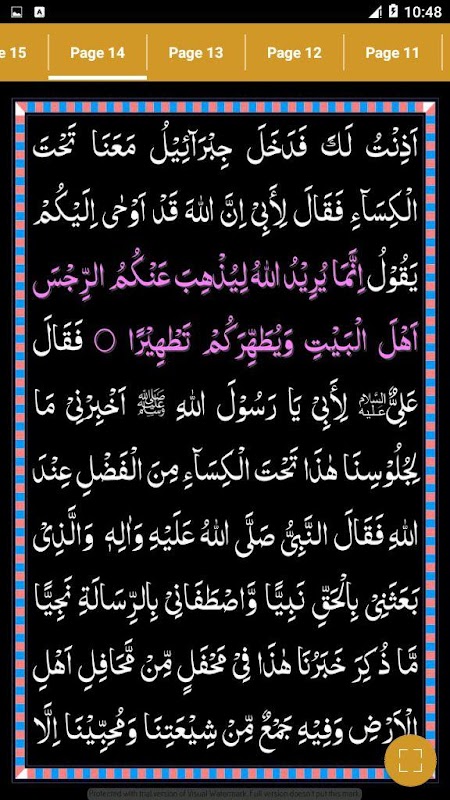 10:48
e 15 Page 14 Page 13 Page 12 Page 11
اَذِنْتُ لَكَ فَدَخَلَ جِبْرَآئِيْلُ مَعَنَا تَحْتَ
الْكِسَآءِ فَقَالَ لِأَبِيْ اِنَّ اللهَ قَدْ اَوْحٰى اِلَيْكُمْ
يَقُوْلُ اِنَّمَا يُرِيْدُ اللهُ لِيُذْهِبَ عَنْكُمُ الرِّجْسَ
اَهْلَ الْبَيْتِ وَيُطَهِّرَكُمْ تَطْهِيْرًا ○ فَقَالَ
عَلِيٌّ عليه السلام لِأَبِيْ يَا رَسُوْلَ اللهِ ﷺ اَخْبِرْنِيْ مَا
لِجُلُوْسِنَا هٰذَا تَحْتَ الْكِسَآءِ مِنَ الْفَضْلِ عِنْدَ
اللهِ فَقَالَ النَّبِيُّ صَلَّى اللهُ عَلَيْهِ وَاٰلِهٖ وَالَّذِيْ
بَعَثَنِيْ بِالْحَقِّ نَبِيًّا وَّاصْطَفَانِيْ بِالرِّسَالَةِ نَجِيًّا
مَّا ذُكِرَ خَبَرُنَا هٰذَا فِيْ مَحْفَلٍ مِّنْ مَّحَافِلِ اَهْلِ
الْاَرْضِ وَفِيْهِ جَمْعٌ مِّنْ شِيْعَتِنَا وَمُحِبِّيْنَا اِلَّا
Protected with trial version of Visual Watermark. Full version doesn't put this mark.